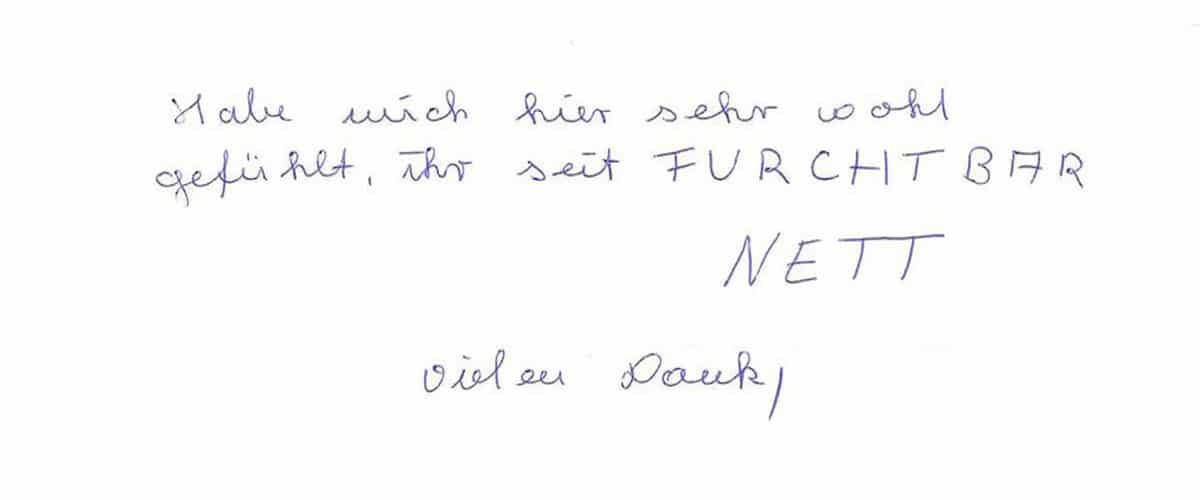 Habe mich hier sehr wohl
gefühlt, ihr seit FURCHTBAR
NETT
vielen Dank,